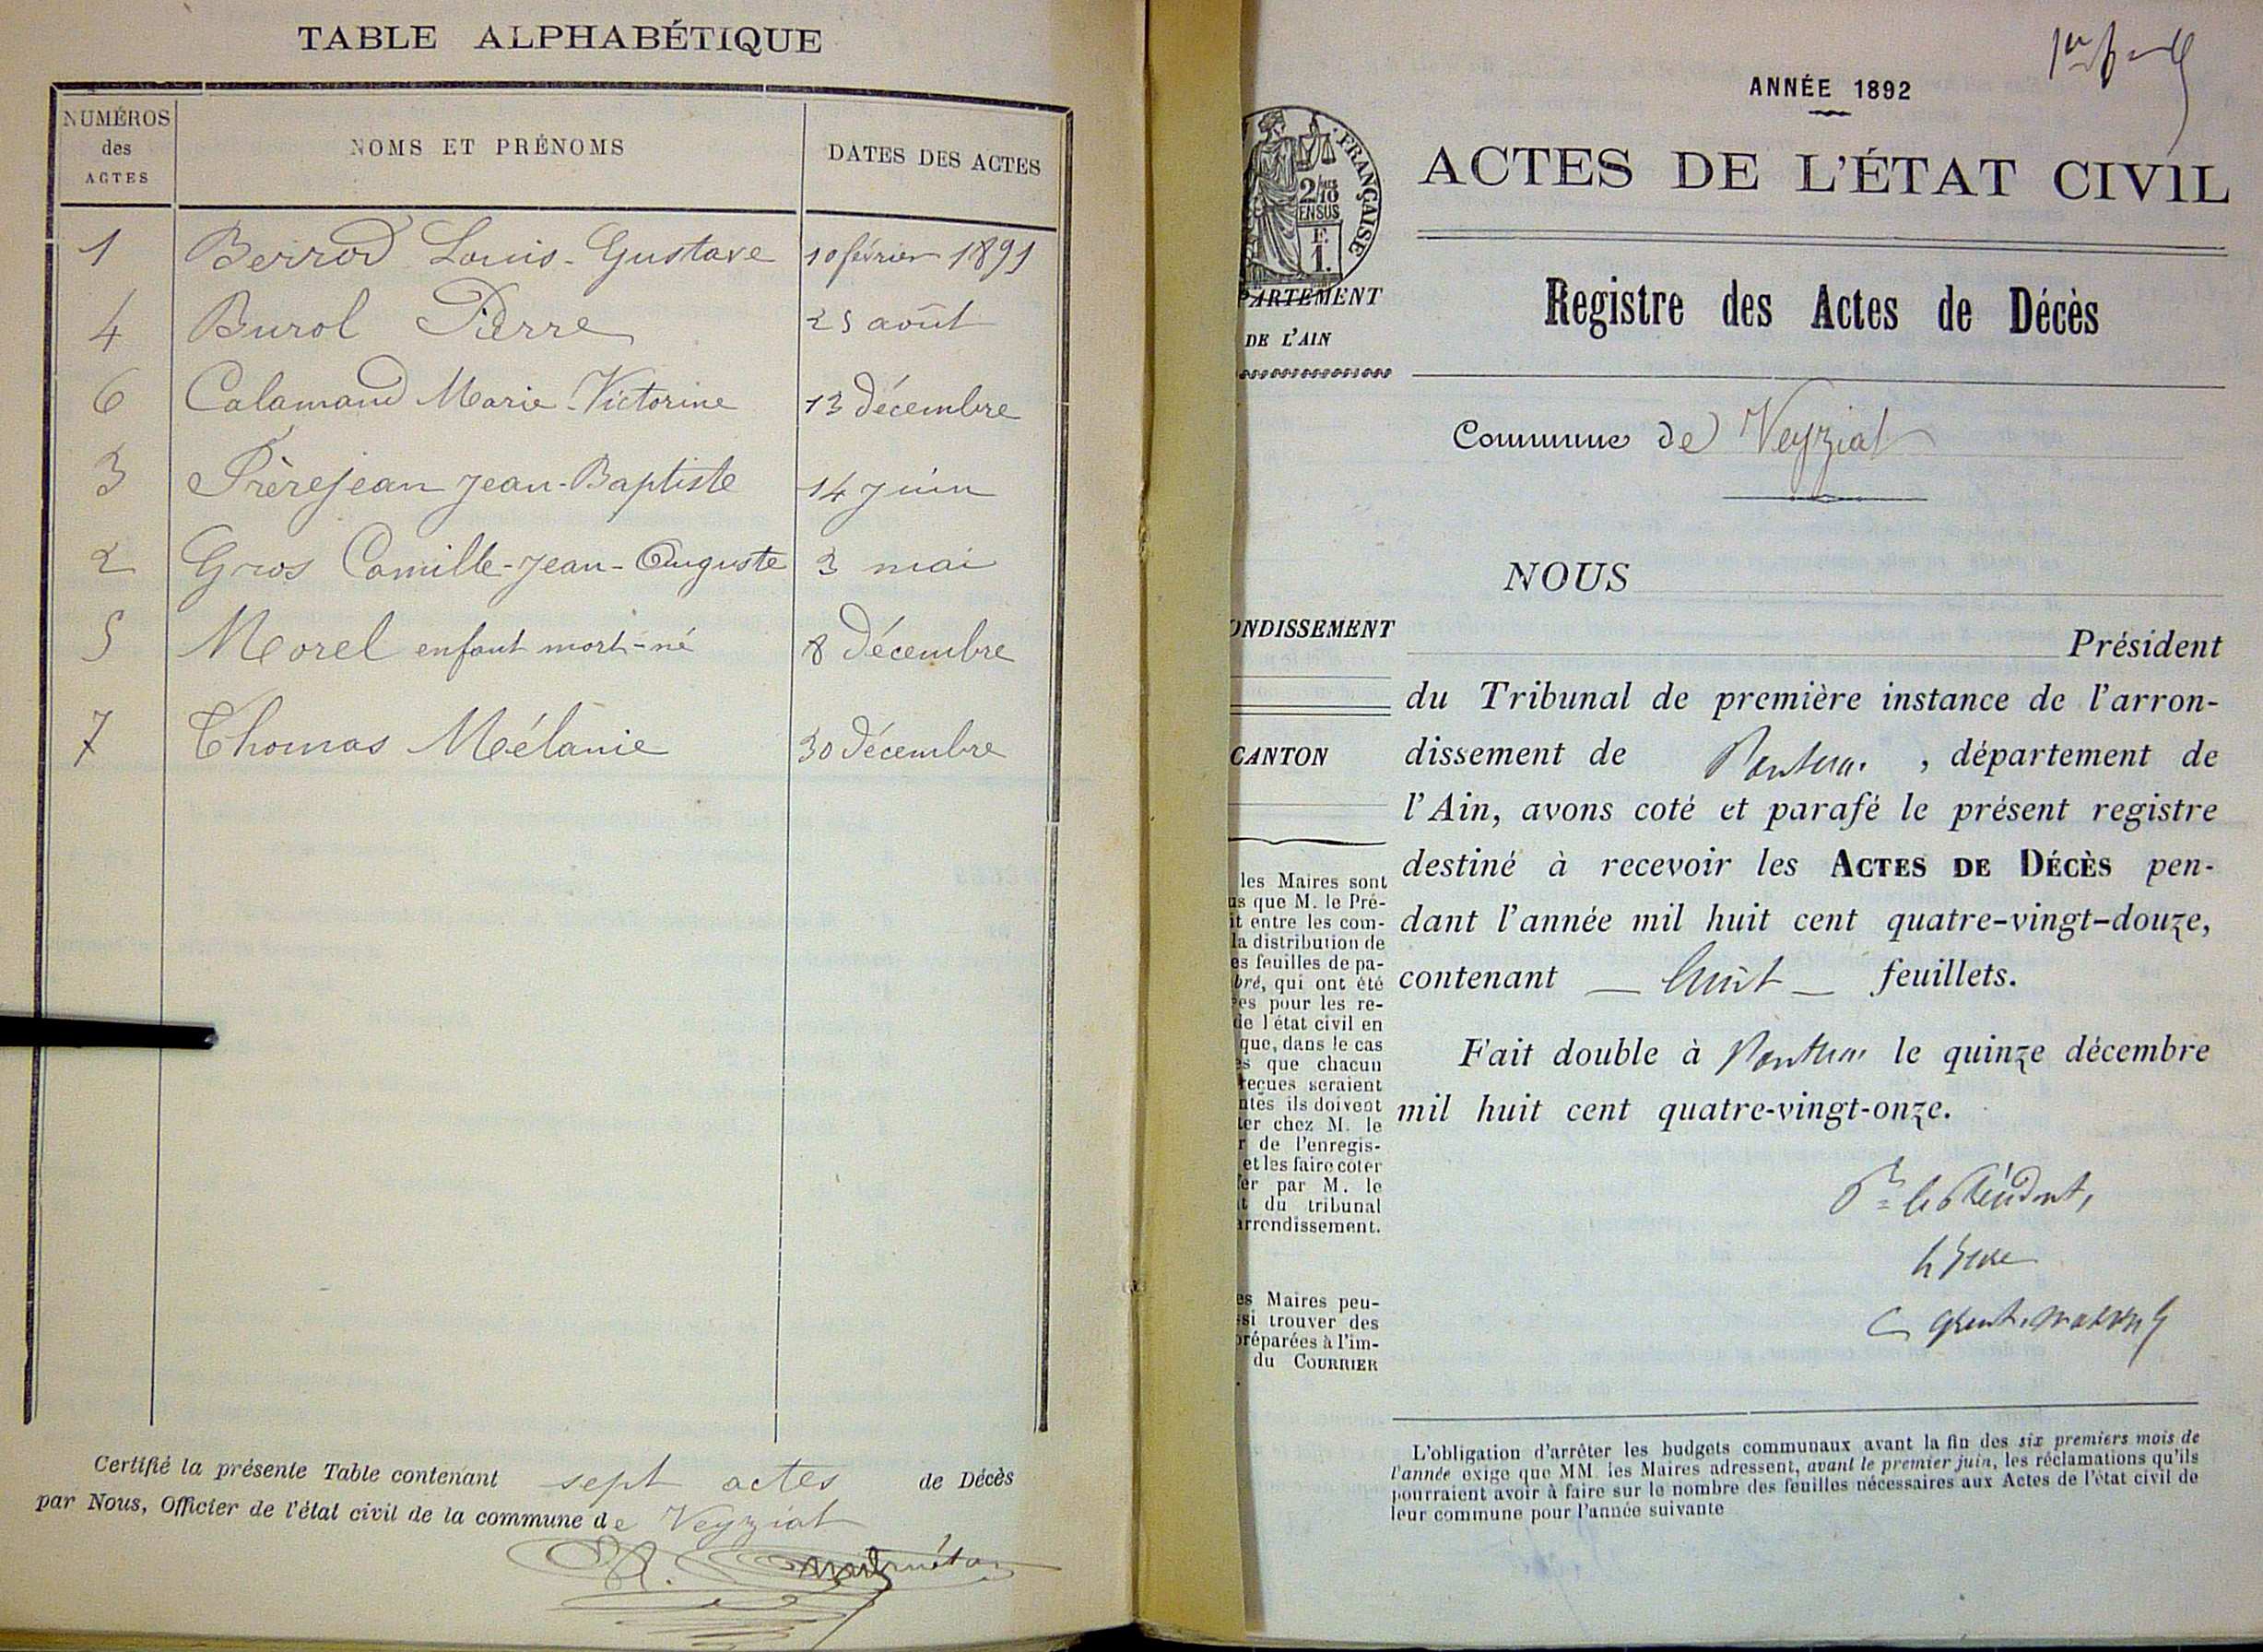 TABLE ALPHABÉTIQUE
NUMÉROS des ACTES
NOMS ET PRÉNOMS
DATES DES ACTES
1 Berrod Louis-Gustave 10 février 1891
4 Burol Pierre 25 août
6 Calamand Marie-Victorine 13 décembre
3 Frèrejean Jean-Baptiste 14 juin
2 Gros Camille-Jean-Auguste 3 mai
5 Morel enfant mort-né 8 décembre
7 Thomas Mélanie 30 décembre
Certifié la présente Table contenant sept actes de Décès
par Nous, Officier de l'état civil de la commune de Veyziat
ANNÉE 1892
ACTES DE L'ÉTAT CIVIL
FRANÇAISE
2/10
EN SUS
F.
1.
PARTEMENT
DE L'AIN
Registre des Actes de Décès
Commune de Veyziat
NOUS
ONDISSEMENT
Président
du Tribunal de première instance de l'arron-
CANTON
dissement de Nantua, département de
l'Ain, avons coté et parafé le présent registre
destiné à recevoir les ACTES DE DÉCÈS pen-
dant l'année mil huit cent quatre-vingt-douze,
contenant _ huit _ feuillets.
Fait double à Nantua le quinze décembre
mil huit cent quatre-vingt-onze.
les Maires sont
us que M. le Pré-
it entre les com-
la distribution de
es feuilles de pa-
bré, qui ont été
es pour les re-
de l'état civil en
que, dans le cas
es que chacun
reçues seraient
ntes ils doivent
ter chez M. le
r de l'enregis-
et les faire coter
er par M. le
t du tribunal
arrondissement.
es Maires peu-
ssi trouver des
préparées à l'im-
du COURRIER
Pr le Président,
le Juge
L'obligation d'arrêter les budgets communaux avant la fin des six premiers mois de
l'année exige que MM. les Maires adressent, avant le premier juin, les réclamations qu'ils
pourraient avoir à faire sur le nombre des feuilles nécessaires aux Actes de l'état civil de
leur commune pour l'année suivante